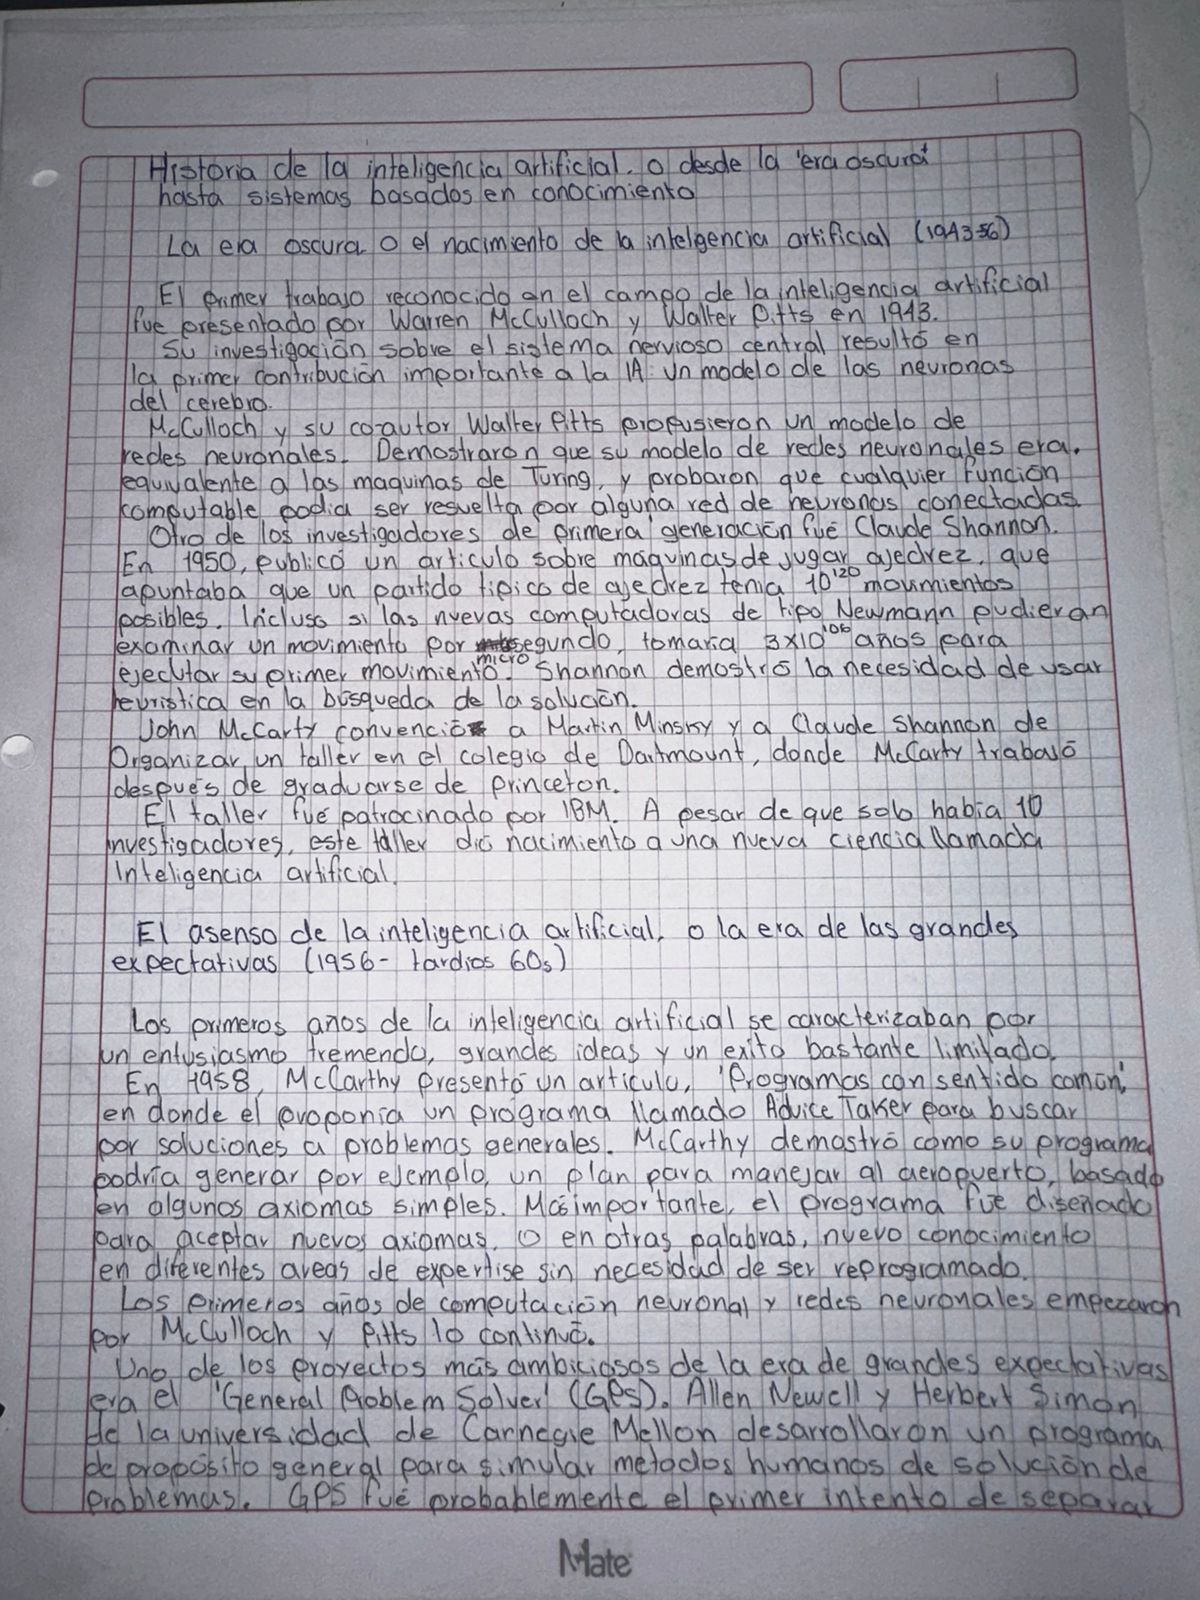 Historia de la inteligencia artificial. o desde la 'era oscura'
hasta sistemas basados en conocimiento
La era oscura o el nacimiento de la intelgencia artificial (1943-56)
El primer trabajo reconocido en el campo de la inteligencia artificial
fue presentado por Warren McCulloch y Walter Pitts en 1943.
Su investigación sobre el sistema nervioso central resultó en
la primer contribución importante a la IA: Un modelo de las neuronas
del cerebro.
McCulloch y su co-autor Walter Pitts propusieron un modelo de
redes neuronales. Demostraron que su modelo de redes neuronales era.
equivalente a las maquinas de Turing, y probaron que cualquier función
computable podia ser resuelta por alguna red de neuronas conectadas
Otro de los investigadores de primera generación fué Claude Shannon.
En 1950, publicó un articulo sobre maquinas de jugar ajedrez, que
apuntaba que un partido tipico de ajedrez tenia 10^120 movimientos
posibles. Incluso si las nuevas computadoras de tipo Newmann pudieran
examinar un movimiento por segundo, tomaria 3x10^106 años para
micro
ejecutar su primer movimiento. Shannon demostró la necesidad de usar
heuristica en la búsqueda de la solución.
John McCarty convenció a Martin Minsky y a Claude Shannon de
Organizar un taller en el colegio de Dartmount, donde McCarty trabajó
después de graduarse de Princeton.
El taller fué patrocinado por IBM. A pesar de que solo habia 10
investigadores, este taller dió nacimiento a una nueva ciencia llamada
Inteligencia artificial.
El asenso de la inteligencia artificial, o la era de las grandes
expectativas (1956- tardios 60s)
Los primeros años de la inteligencia artificial se caracterizaban por
un entusiasmo tremendo, grandes ideas y un exito bastante limitado.
En 1958, McCarthy presentó un articulo, 'Programas con sentido común,'
en donde el proponía un programa llamado Advice Taker para buscar
por soluciones a problemas generales. McCarthy demostró como su programa
podría generar por ejemplo, un plan para manejar al aeropuerto, basado
en algunos axiomas simples. Más importante, el programa fue diseñado
para aceptar nuevos axiomas, o en otras palabras, nuevo conocimiento
en diferentes areas de expertise sin necesidad de ser reprogramado.
Los primeros años de computación neuronal y redes neuronales empezaron
por McCulloch y Pitts lo continuó.
Uno de los proyectos más ambiciosos de la era de grandes expectativas
era el 'General Problem Solver' (GPS). Allen Newell y Herbert Simon
de la universidad de Carnegie Mellon desarrollaron un programa
de propósito general para simular metodos humanos de solución de
problemas. GPS fué probablemente el primer intento de separar
Mate